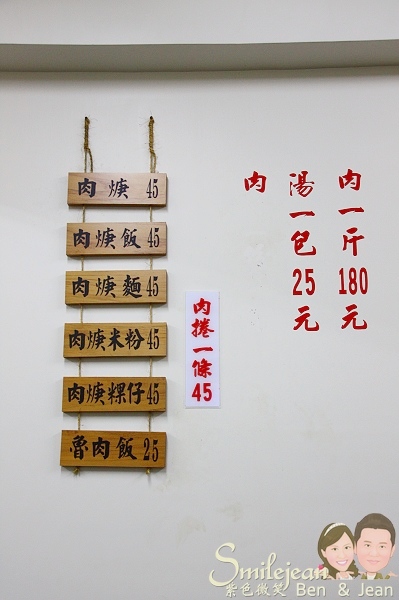 肉焿 45
肉焿飯 45
肉焿麵 45
肉焿米粉 45
肉焿粿仔 45
魯肉飯 25
肉捲一條45
肉一斤180元
湯一包25元
肉
Smilejean
紫色微笑 Ben & Jean